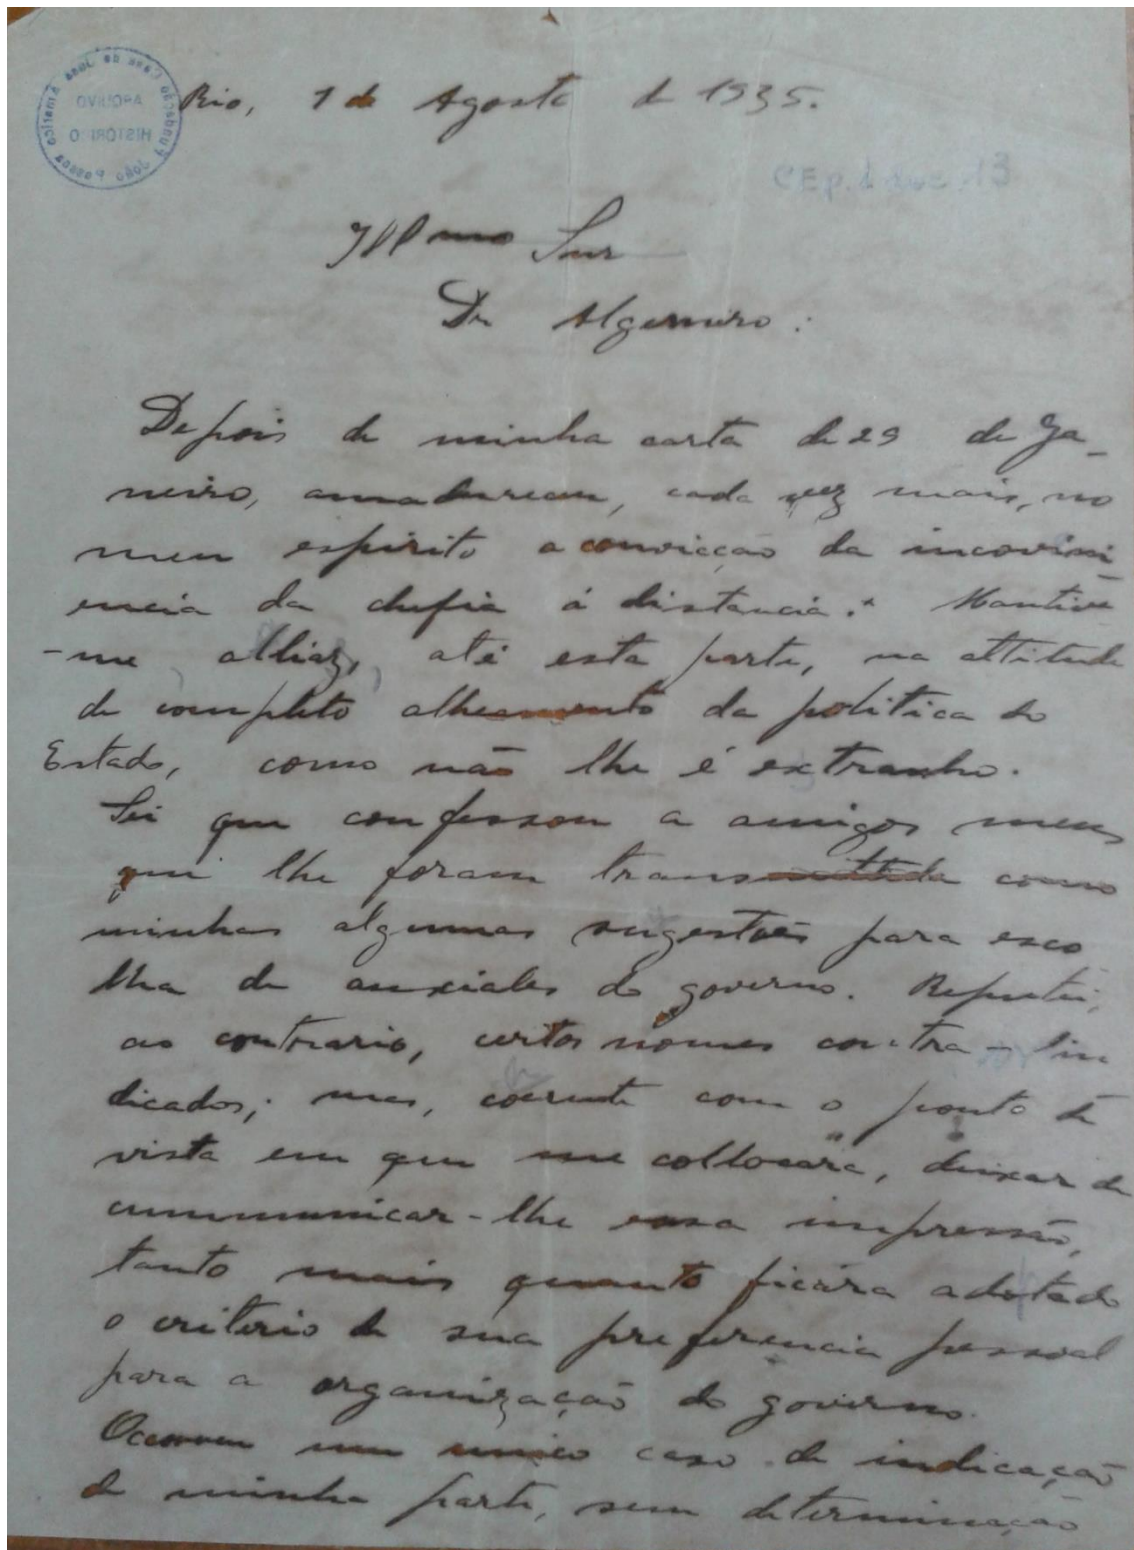 Fundação Casa de José Américo
ARQUIVO
HISTÓRICO
João Pessoa
Rio, 1 de Agosto de 1935.
CEp. 1 doc. 13
Illmo Snr
Dr Algemiro:
Depois de minha carta de 29 de Ja-
neiro, amadureceu, cada vez mais, no
meu espirito a convicção da inconveni
encia da chefia á distancia. Mantive
-me alliaz, até esta parte, na attitude
de completo alheamento da politica do
Estado, como não lhe é extranho.
Sei que confessou a amigos meus
que lhe foram transmittida como
minhas algumas sugestões para esco
lha de auxiales do governo. Reputei,
ao contrario, certos nomes contra-in
dicados; mas, coerente com o ponto de
vista em que me collocára, deixar de
communicar-lhe essa impressão,
tanto mais quanto ficára adotado
o criterio de sua preferencia pessoal
para a organização do governo.
Ocorreu um unico caso de indicação
de minha parte, sem determinação